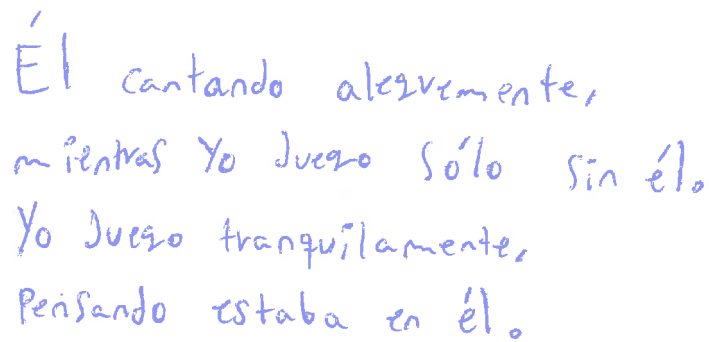 Él cantando alegremente,
mientras Yo Juego Sólo sin él.
Yo Juego tranquilamente,
Pensando estaba en él.